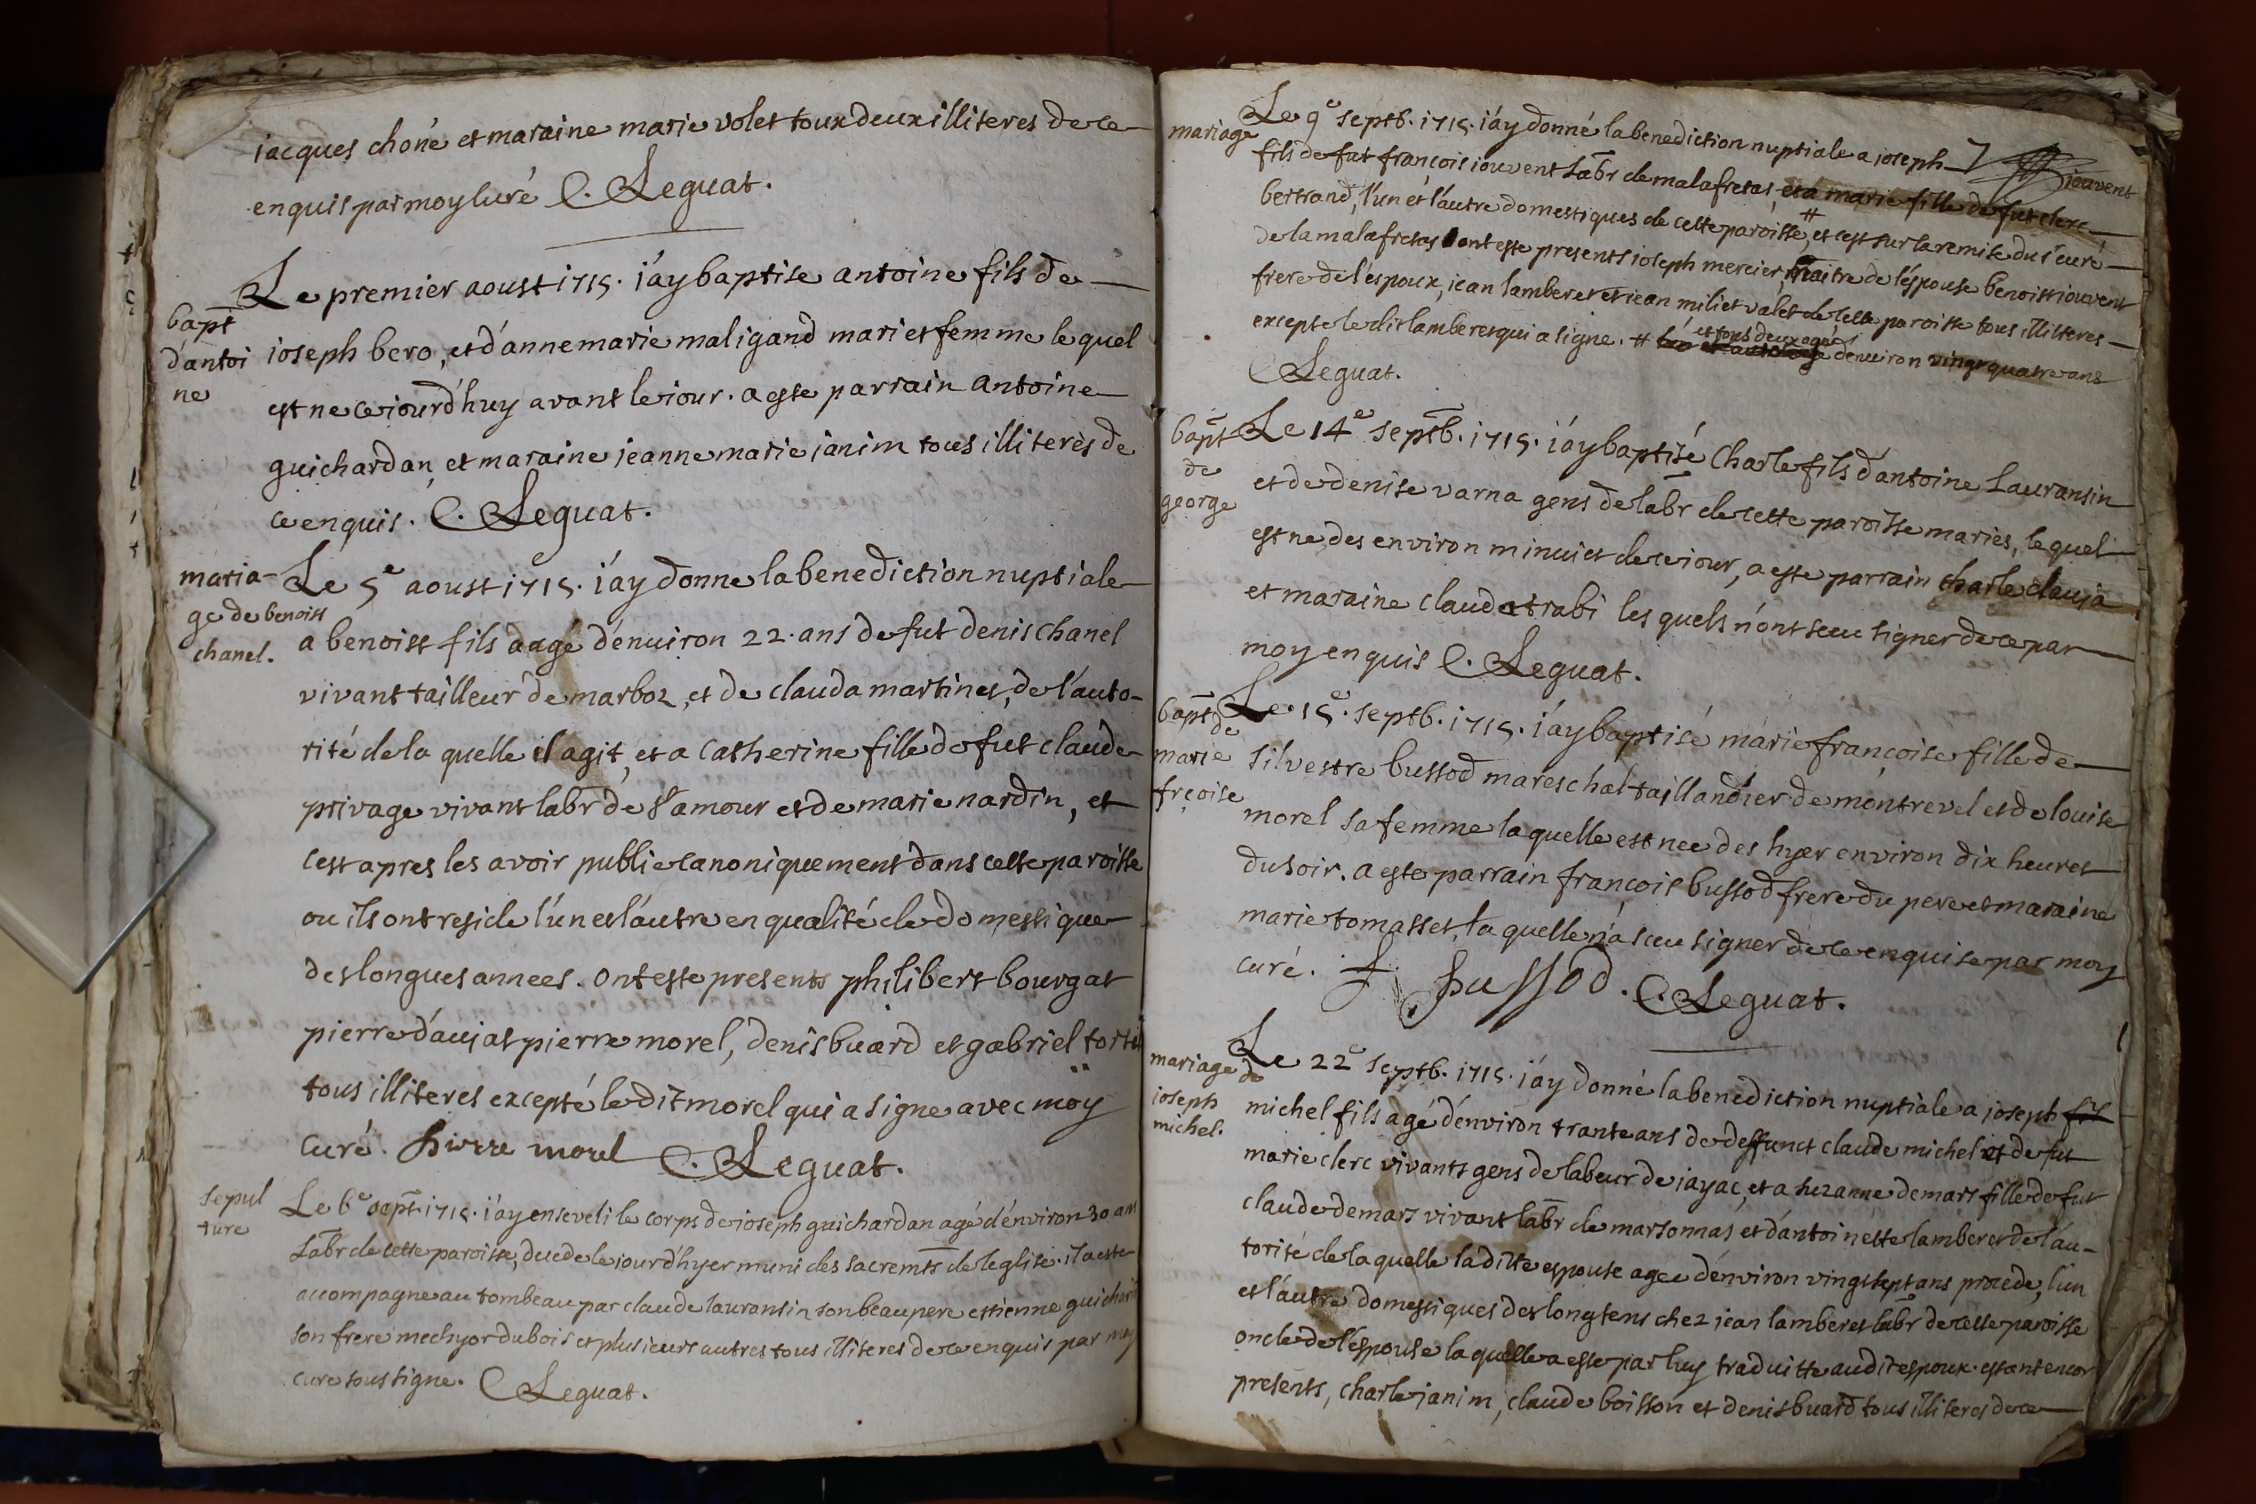 jacques choné et maraine marie volet toux deux illiteres de ce
enquis par moy curé C. Leguat.
bapt d'antoi ne
Le premier aoust 1715. j'ay baptise antoine fils de
joseph bero, et d'anne marie maligand mari et femme le quel
est ne ce iourd'huy avant le iour. a este parrain antoine
guichardan, et maraine jeanne marie janim tous illiterès de
ce enquis. C. Leguat.
maria- ge de benoist chanel.
Le 5e aoust 1715. j'ay donne la benediction nuptiale
a benoist fils aagé d'enuiron 22. ans de fut denis chanel
vivant tailleur de marboz, et de clauda martinet, de l'auto-
rité de la quelle il agit, et a Catherine fille de fut claude
privage vivant labr de st amour et de marie nardin, et
c'est apres les avoir publie canoniquement dans cette paroisse
ou ils ont reside l'un et l'autre en qualité de domestique
des longues annees. ont este presents philibert bourgat
pierre d'aujat pierre morel, denis buard et gabriel
tous illiteres excepté le dit morel qui a signe avec moÿ
curé. pierre morel C. Leguat.
sepul ture
Le 6e sept. 1715. j'ay enseveli le corps de joseph guichardan agé d'énviron 30 ans
labr de cette paroisse, decede le iourd'hyer muni des sacremts de leglise. il a este
accompagne au tombeau par claude lauransin son beau pere estienne
son frere mechyor dubois et plusieurs autres tous illiteres de ce enquis par moy
cure soussigne. C Leguat.
mariage
Le 9e septb. 1715. j'ay donné la benediction nuptiale a joseph iouvent
fils de fut françois iouvent labr de malafretas, et a marie fille de fut clerc
bertrand, l'un et l'autre domestiques de cette paroisse, # et c'est sur la remise du sr curé
de la malafretas ont este presents joseph mercier, maitre de l'éspouse benoist iouvent
frere de l'espoux, jean lamberet et jean miliet valet de cette paroisse tous illitteres
excepte le dit lamberet qui a signe. # et tous deux agés denviron vingt quatre ans
C Leguat.
bapt de george
Le 14e septb. 1715. j'áy baptisé Charle fils d'antoine Lauransin
et de denise varna gens de labr de cette paroisse mariès, le quel
est ne des environ minuict de ce iour, a este parrain charle clauja
et maraine claudatrabi les quels n'ont sceu signer de ce par
moy enquis C. Leguat.
bapt de marie frçoise
Le 15e. septb. 1715. j'áy baptisé marie françoise fille de
silvestre bussod mareschal taillandier de montrevel et de louise
morel sa femme la quelle est nee des hyer environ dix heures
du soir. a este parrain françois bussod frere du pere et maraine
marie tomasset, la quelle n'a sceu signer de ce enquise par moy
curé. f. bussod. C. Leguat.
mariage de joseph michel.
Le 22e septb. 1715. j'áy donné la benediction nuptiale a joseph
michel fils agé d'énviron trante ans de deffunct claude michel et de fut
marie clerc vivants gens de labeur de jayac, et a suzanne demars fille de fut
claude demars vivant labr de marsonnas et d'antoinette lamberet de l'au-
torité de la quelle laditte espouse agee d'énviron vingt sept ans procede, l'un
et l'autre domestiques des longtens chez jean lamberet labr de cette paroisse
oncle de l'espouse la quelle a este par luy traduitte audit espoux. estant encor
presents, charle janim, claude boisson et denis buard tous illiteres de ce